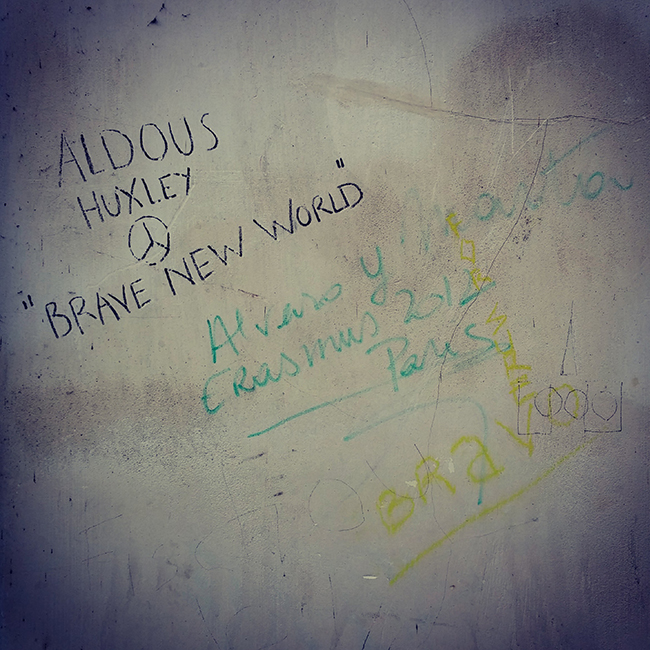 ALDOUS
HUXLEY
"BRAVE NEW WORLD"
Alvaro y
Erasmus 2012
Paris
BRAVO